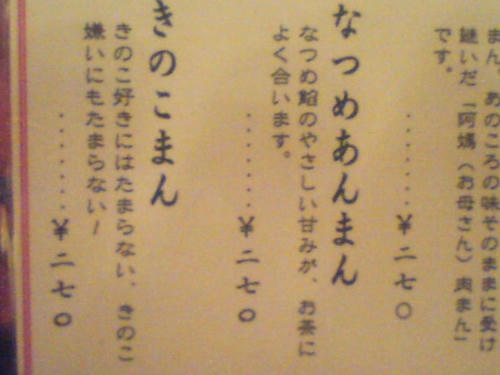 まん、あのころの味そのままに受け
継いだ「阿媽（お母さん）肉まん」
です。
........¥二七〇
なつめあんまん
なつめ餡のやさしい甘みが、お茶に
よく合います。
........¥二七〇
きのこまん
きのこ好きにはたまらない、きのこ
嫌いにもたまらない！
........¥二七〇